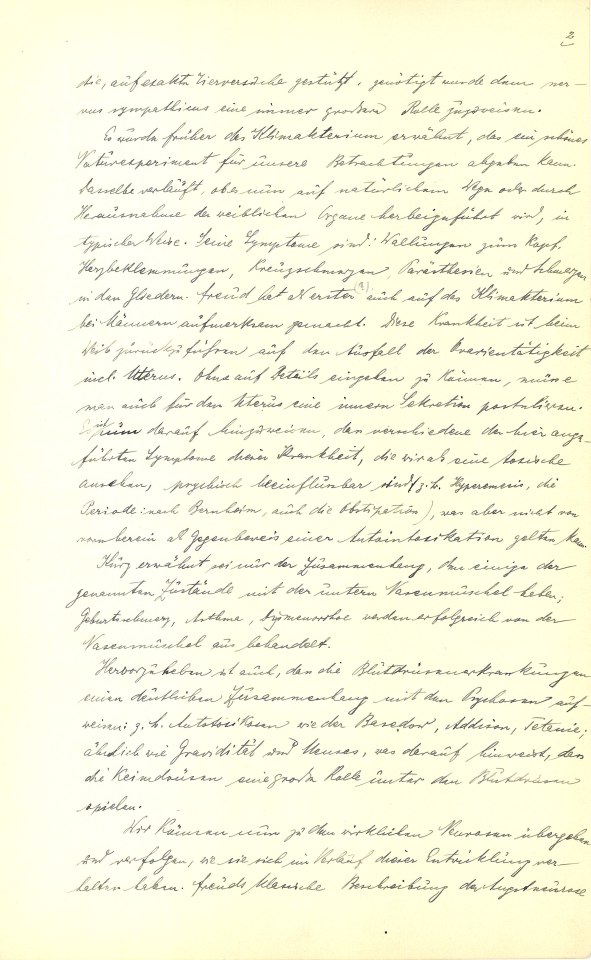 2
die, auf exakte Tierversuche gestützt, genötigt wurde dem ner-
vus sympathicus eine immer grössere Rolle zuzuweisen.
Es wurde früher das Klimakterium erwähnt, das ein schönes
Naturexperiment für unsere Betrachtungen abgeben kann.
Dasselbe verläuft, ob es nun auf natürlichem Wege oder durch
Herausnahme der weiblichen Organe herbeigeführt wird, in
typischer Weise. Seine Symptome sind: Wallungen zum Kopf,
Herzbeklemmungen, Kreuzschmerzen, Parästhesien und Schmerzen
in den Gliedern. Freud hat als erster (?) auch auf das Klimakterium
bei Männern aufmerksam gemacht. Diese Krankheit ist beim
Weib zurückzuführen auf den Ausfall der Ovarientätigkeit
incl. Uterus. Ohne auf Details eingehen zu können, müsse
man auch für den Uterus eine innere Sekretion postulieren.
Es ist nun darauf hinzuweisen, dass verschiedene der hier ange-
führten Symptome dieser Krankheit, die wir als eine toxische
ansehen, psychisch beeinflussbar sind (z.b. Hyperemesis, die
Periode: nach Bernheim, auch die Obstipation), was aber nicht von
vornherein als Gegenbeweis einer Autointoxikation gelten kann.
Kurz erwähnt sei nur der Zusammenhang, den einige der
genannten Zustände mit der untern Nasenmuschel haben;
Geburtsschmerz, Asthma, Dysmenorrhoe werden erfolgreich von der
Nasenmuschel aus behandelt.
Hervorzuheben ist auch, dass die Blutdrüsenerkrankungen
einen deutlichen Zusammenhang mit den Psychosen auf-
weisen: z.b. Autotoxikosen wie der Basedow, Addison, Tetanie;
ähnlich wie Gravidität und Menses, was darauf hinweist, dass
die Keimdrüsen eine grosse Rolle unter den Blutdrüsen
spielen.
Wir können nun zu den wirklichen Neurosen übergehen
und verfolgen, wie sie sich im Verlauf dieser Entwicklung ver-
halten haben. Freuds klassische Beschreibung der Angstneurose